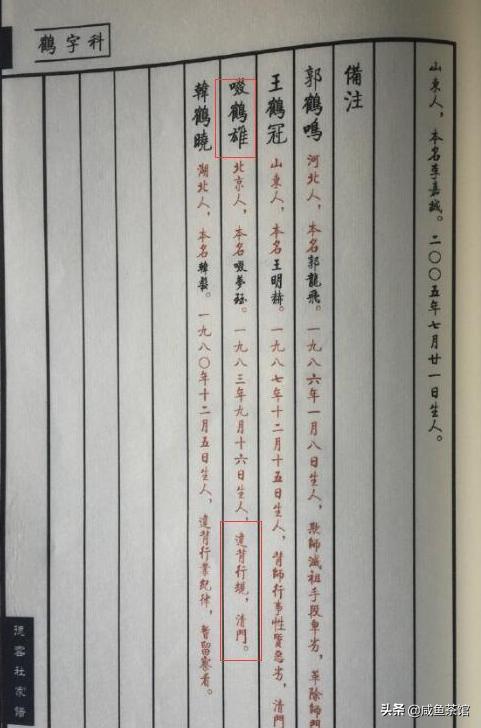 鶴字科
山東人，本名李嘉誠。二〇〇五年七月廿一日生人。
備注
郭鶴鳴 河北人，本名郭龍飛。一九八六年一月八日生人，欺師滅祖手段卑劣，革除師門
王鶴冠 山東人，本名王明赫。一九八七年十二月十五日生人，背師行事性質惡劣，清門
啜鶴雄 北京人，本名啜夢珏。一九八三年九月十六日生人，違背行規，清門。
韓鶴曉 湖北人，本名韓裂。一九八〇年十二月五日生人，違背行業紀律，暫留察看。
德雲社家譜
头条 @咸鱼茶馆